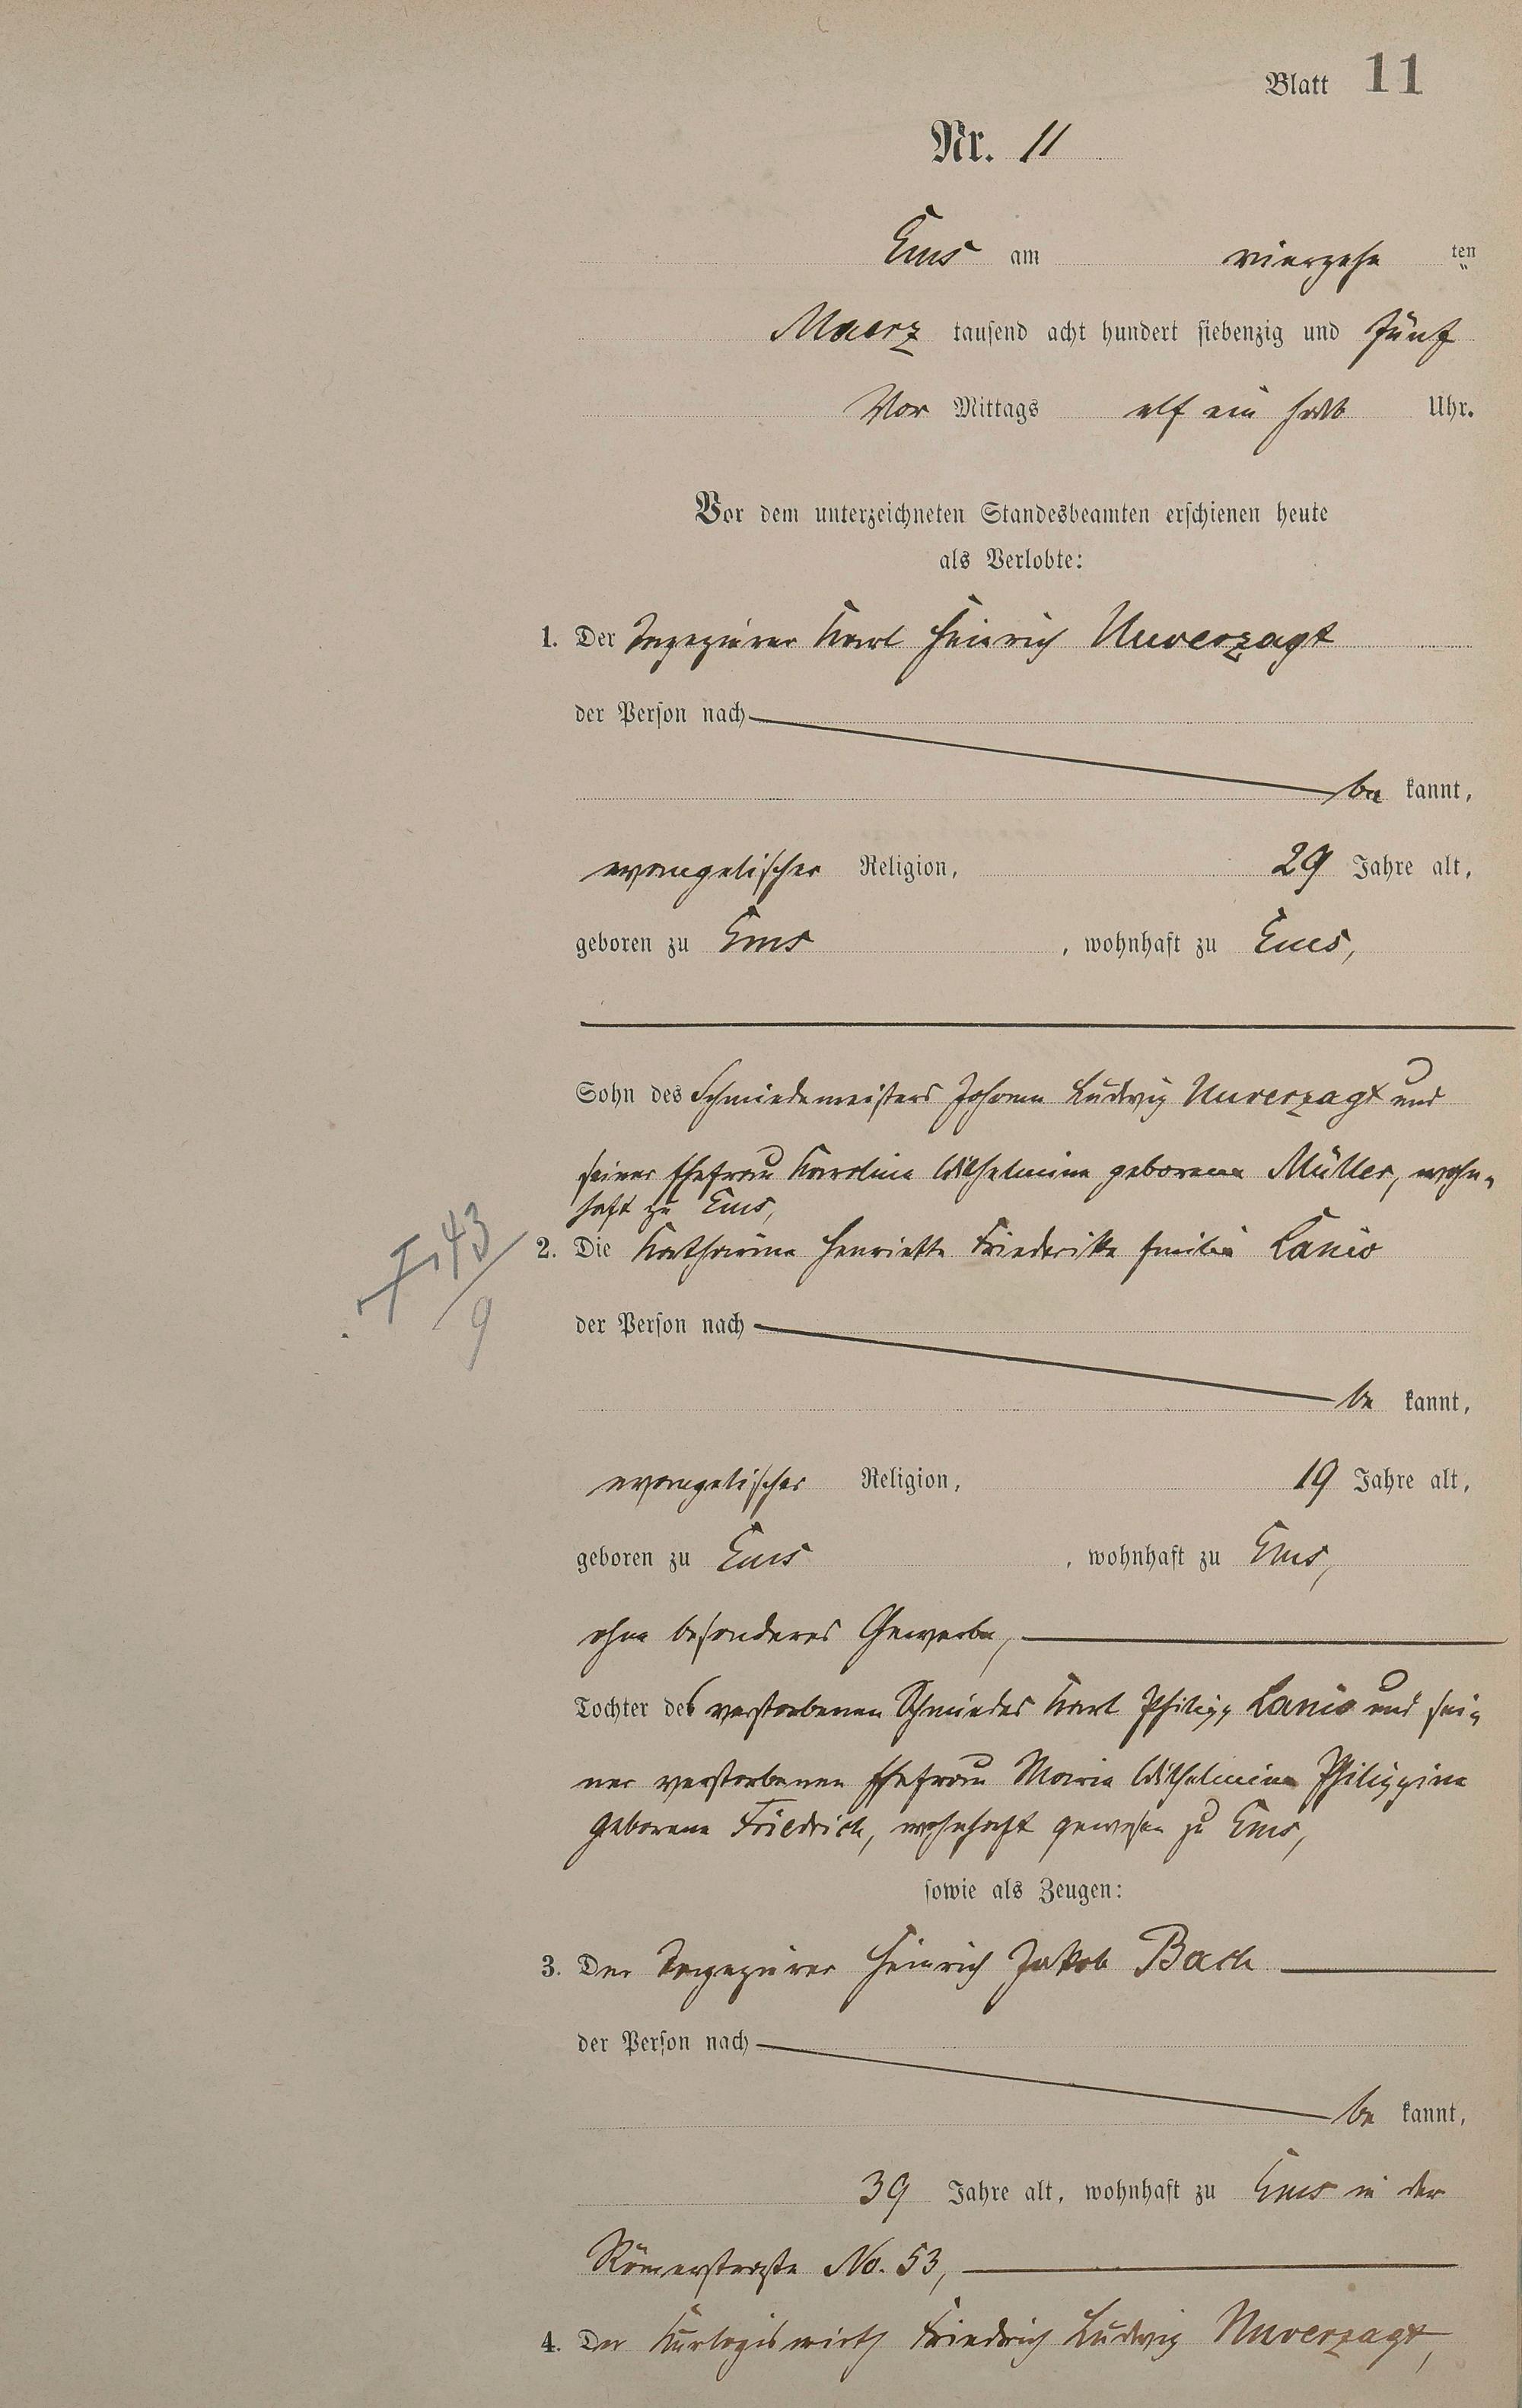 Blatt 11
Nr. 11
Ems am vierzehn ten
Maerz tausend acht hundert siebenzig und fünf
Vor Mittags elf ein halb Uhr.
Vor dem unterzeichneten Standesbeamten erschienen heute
als Verlobte:
1. Der Tapezierer Karl Heinrich Unverzagt
der Person nach
be kannt,
evangelischer Religion, 29 Jahre alt,
geboren zu Ems, wohnhaft zu Ems,
Sohn des Schmiedemeisters Johann Ludwig Unverzagt und
seiner Ehefrau Karoline Wilhelmine geborene Müller, wohn-
haft zu Ems,
2. Die Katharine Henriette Friederike Emilie Lanio
der Person nach
be kannt,
evangelischer Religion, 19 Jahre alt,
geboren zu Ems, wohnhaft zu Ems,
ohne besonderes Gewerbe,
Tochter des verstorbenen Schmiedes Karl Philipp Lanio und sei-
ner verstorbenen Ehefrau Maria Wilhelmine Philippine
geborene Friedrich, wohnhaft gewesen zu Ems,
sowie als Zeugen:
3. Der Tapezierer Heinrich Jakob Bach
der Person nach
be kannt,
39 Jahre alt, wohnhaft zu Ems in der
Römerstraße No. 53,
4. Der Kurlogiswirth Friedrich Ludwig Unverzagt,
43/9